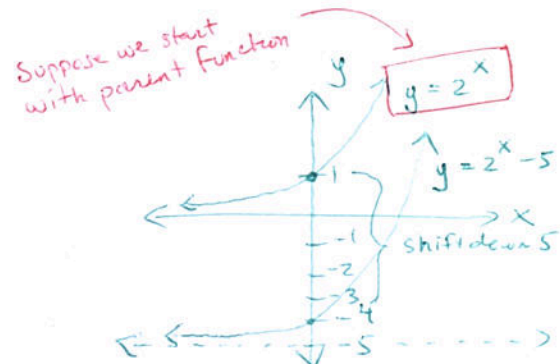 Suppose we start
with parent function
y = 2^x
y
y = 2^x - 5
1
x
-1
shift down 5
-2
-3
-4
-5